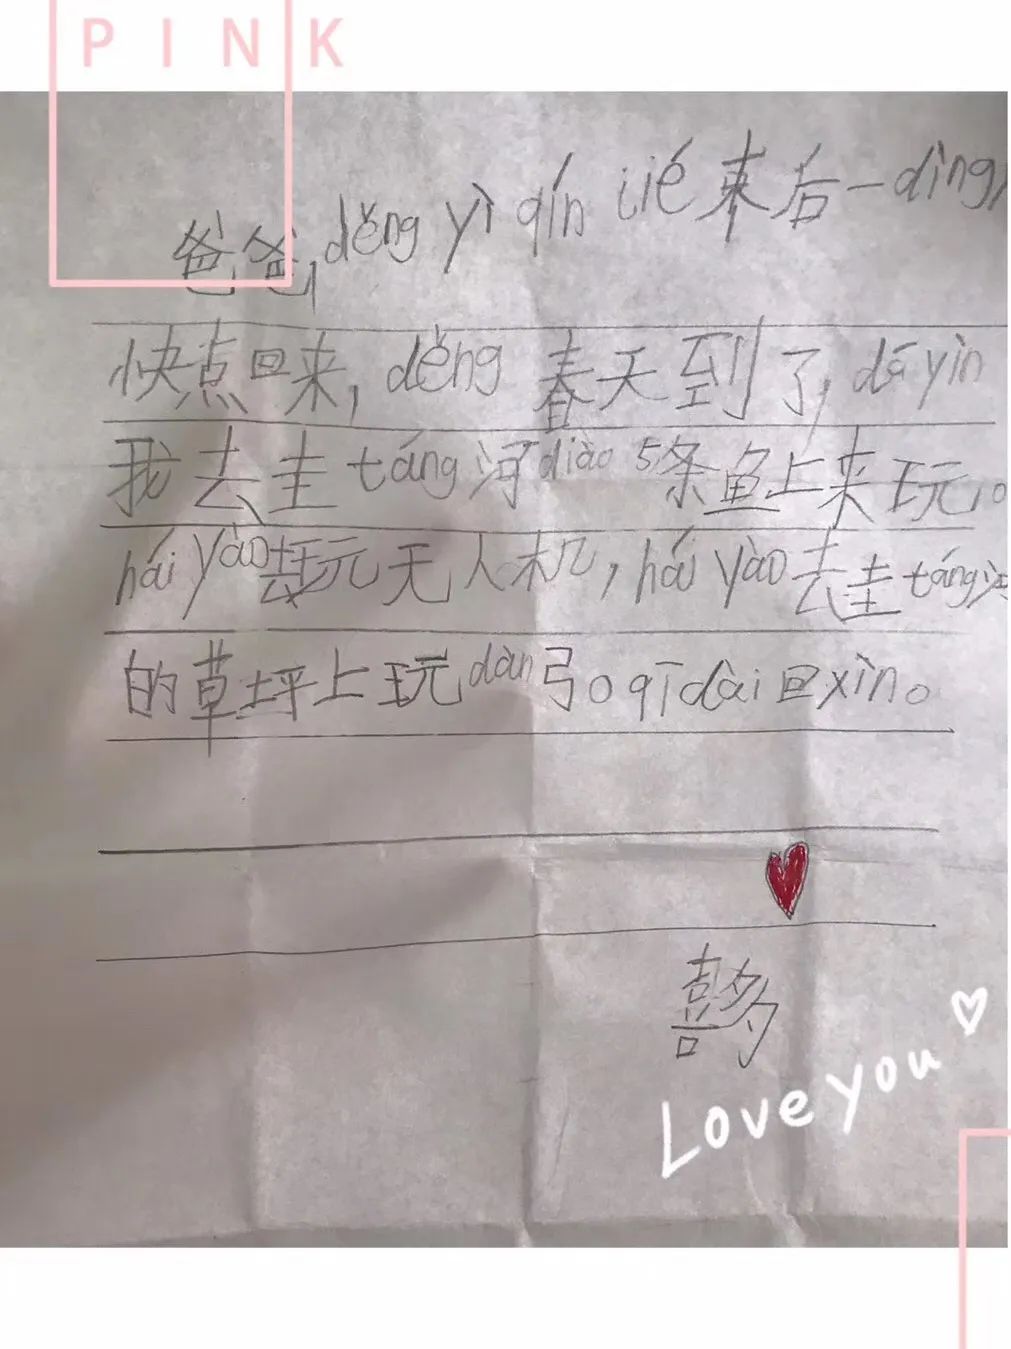 PINK
爸爸,děng yì qíng jié 束后一dìng
快点回来,děng春天到了,dá yìn
我去圭táng河diào5条鱼上来玩。
hái yào 玩无人机,hái yào去圭táng
的草坪上玩dàn弓。qīdài回xìn。
Love you